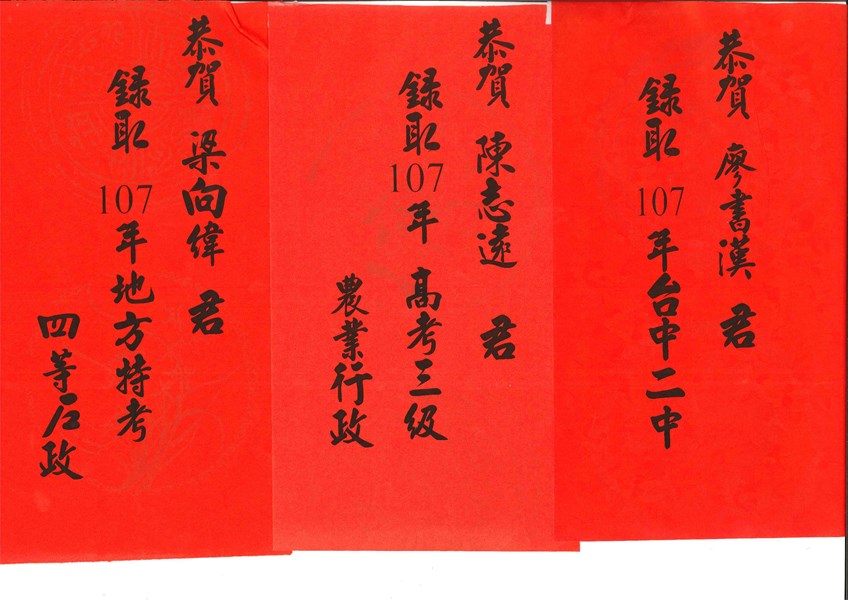 恭賀 廖書漢 君
録取 107 年台中二中
恭賀 陳志遠 君
録取 107 年 高考三級
農業行政
恭賀 梁向緯 君
録取 107 年地方特考
四等戶政